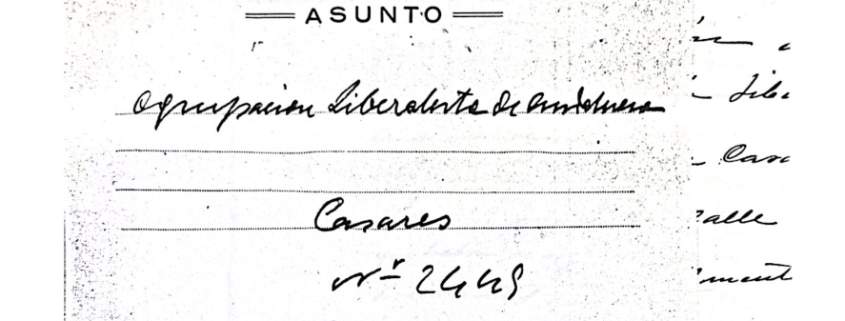 ASUNTO
Agrupación Liberalista de Andalucía
Casares
Nº 2449
Libe
Casa
Calle